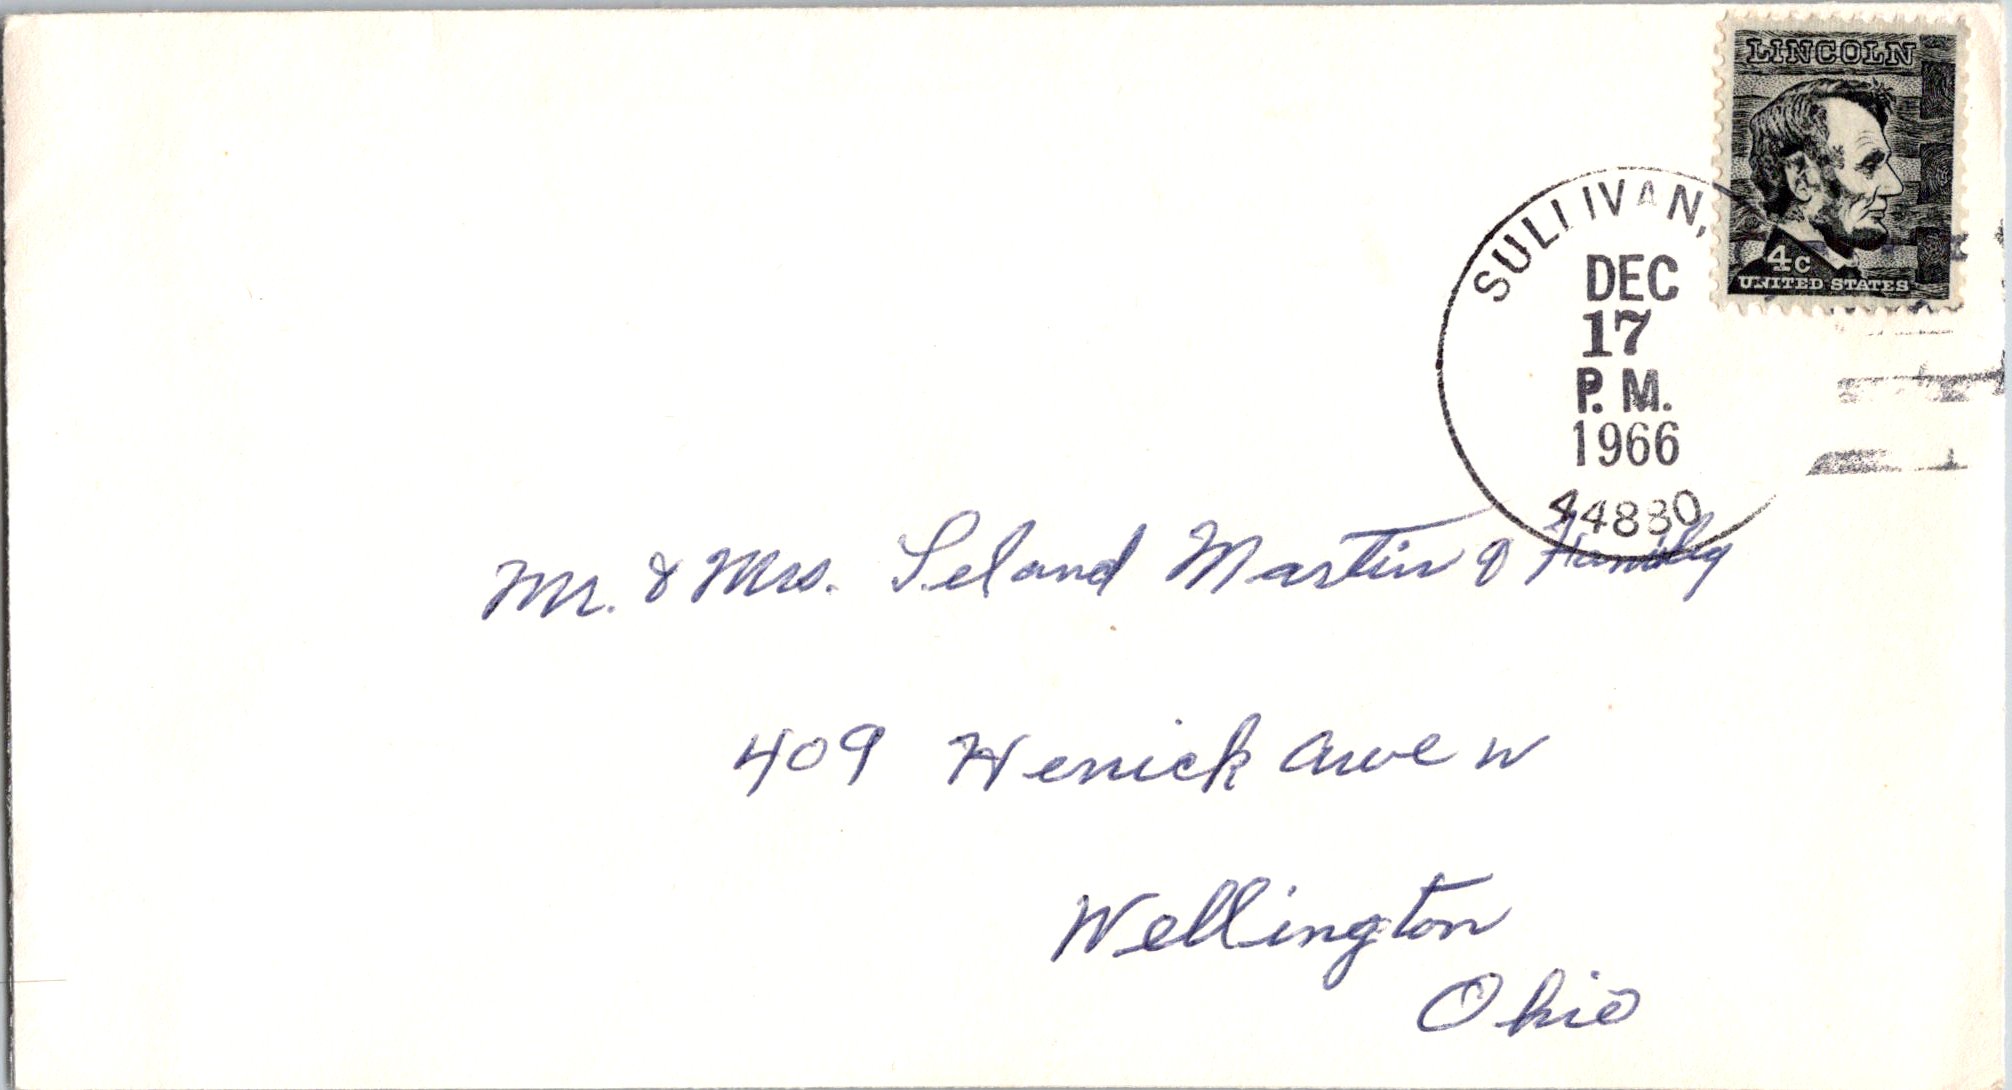 LINCOLN
4c
UNITED STATES
SULLIVAN,
DEC
17
P. M.
1966
44880
Mr. & Mrs. Leland Martin & Family
409 Herrick Ave W
Wellington
Ohio